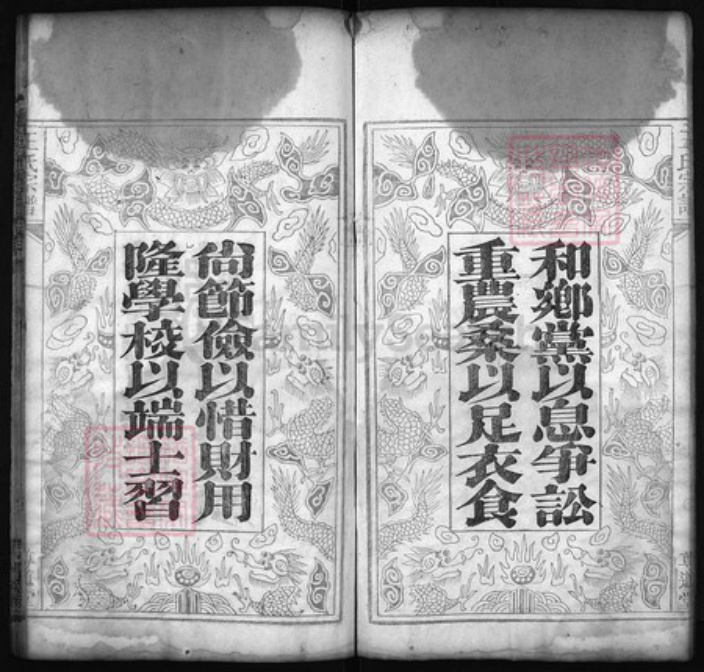 和鄉黨以息爭訟
重農桑以足衣食
尙節儉以惜財用
隆學校以端士習